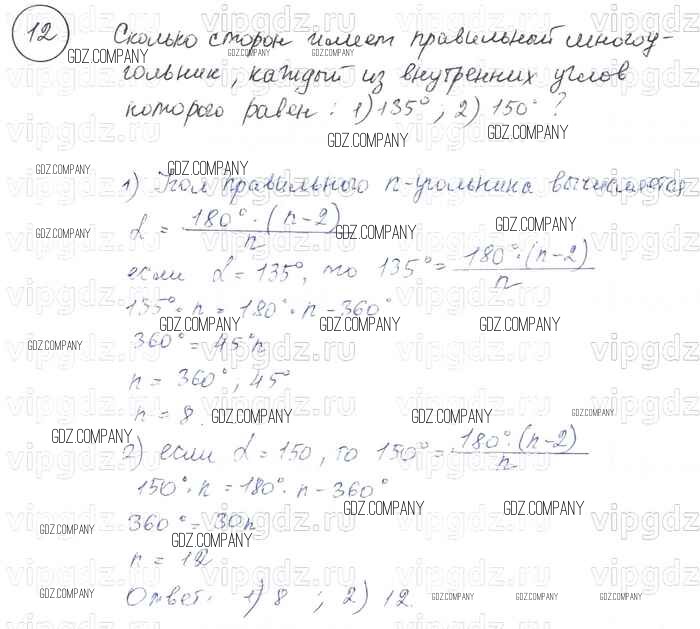 12 Сколько сторон имеет правильный многоу-
гольник, каждый из внутренних углов
которого равен: 1) 135°; 2) 150°?
1) Угол правильного n-угольника вычисляется
α = 180°·(n-2)/n
если α = 135°, то 135° = 180°·(n-2)/n
135°·n = 180°·n - 360°
360° = 45°n
n = 360°, 45°
n = 8.
2) если α = 150, то 150° = 180°·(n-2)/n
150°·n = 180°·n - 360°
360° = 30n
n = 12
Ответ: 1) 8 ; 2) 12.
GDZ.COMPANY
vipgdz.ru